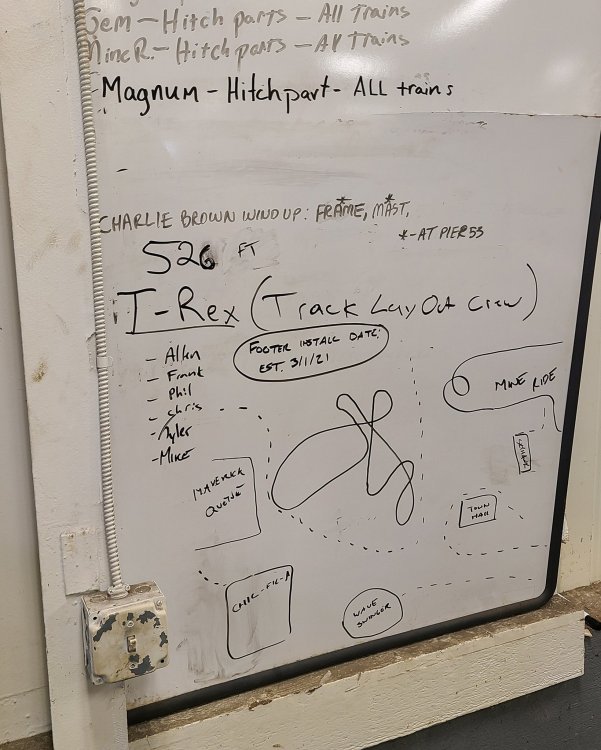 Gem - Hitch parts - All Trains
Mine R. - Hitch parts - All Trains
- Magnum - Hitch part - ALL trains
CHARLIE BROWN WIND UP: FRAME,* MAST.*
*-AT PIER 53
526 FT
T-Rex (Track Lay Out Crew)
FOOTER INSTALL DATE:
EST. 3/1/21
- Allen
- Frank
- Phil
- Chris
- Tyler
- MIKE
MINE RIDE
MAVERICK
QUEUE
TOWN
HALL
CHIC-FIL-A
WAVE
SWINGER